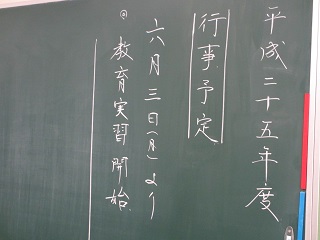 平成二十五年度
行事予定
六月三日(月)より
◎教育実習開始